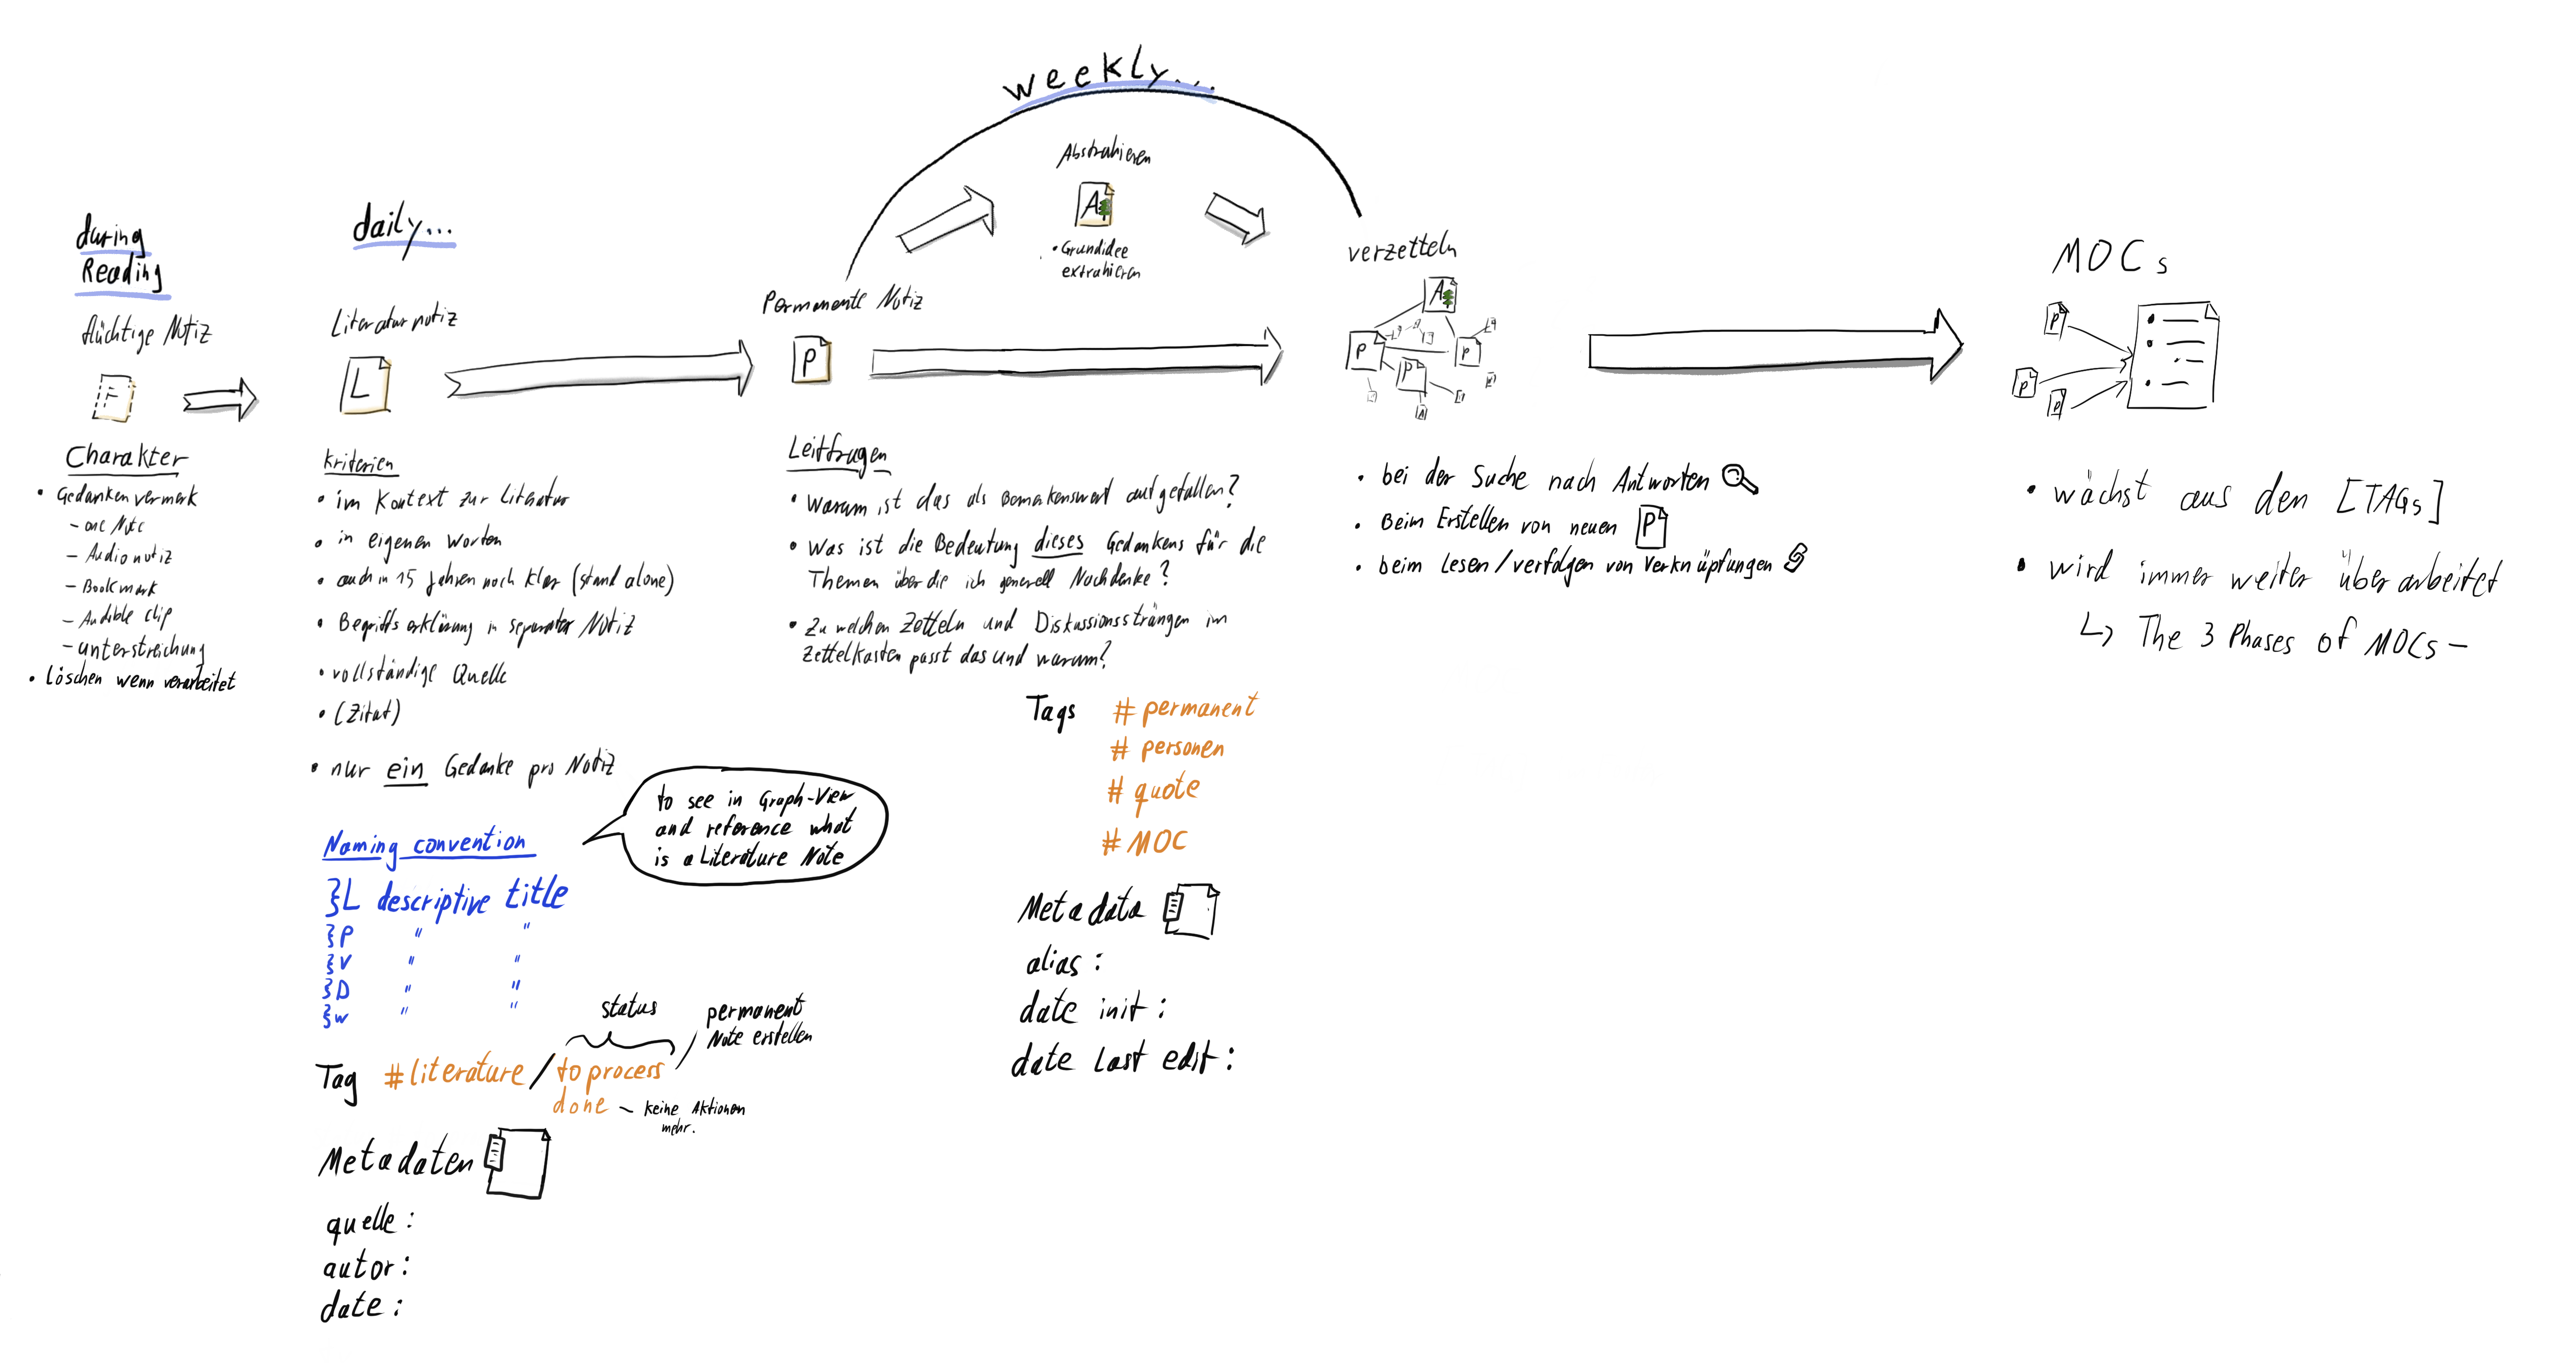 weekly...
Abstrahieren
A
• Grundidee
extrahieren
during
Reading
flüchtige Notiz
F
Charakter
• Gedankenvermerk
– one Note
– Audionotiz
– Bookmark
– Audible clip
– unterstreichung
• Löschen wenn verarbeitet
daily...
Literaturnotiz
L
Kriterien
• im Kontext zur Literatur
• in eigenen Worten
• auch in 15 Jahren noch klar (stand alone)
• Begriffserklärung in separater Notiz
• vollständige Quelle
• (Zitat)
• nur ein Gedanke pro Notiz
to see in Graph-View
and reference what
is a Literature Note
Naming convention
}L descriptive title
}P " "
}V " "
}D " "
}W " "
status
permanent
Note erstellen
Tag #literature / to process
done – keine Aktionen
mehr.
Metadaten
quelle:
autor:
date:
Permanente Notiz
P
Leitfragen
• Warum ist das als Bemerkenswert aufgefallen?
• Was ist die Bedeutung dieses Gedankens für die
Themen über die ich generell Nachdenke?
• Zu welchen Zetteln und Diskussionssträngen im
Zettelkasten passt das und warum?
Tags # permanent
# personen
# quote
# MOC
Metadata
alias:
date init:
date last edit:
verzetteln
A
P
P
P
• bei der Suche nach Antworten
• Beim Erstellen von neuen P
• beim Lesen/verfolgen von Verknüpfungen
MOCs
P
P
P
• wächst aus den [TAGs]
• wird immer weiter überarbeitet
↳ The 3 Phases of MOCs –